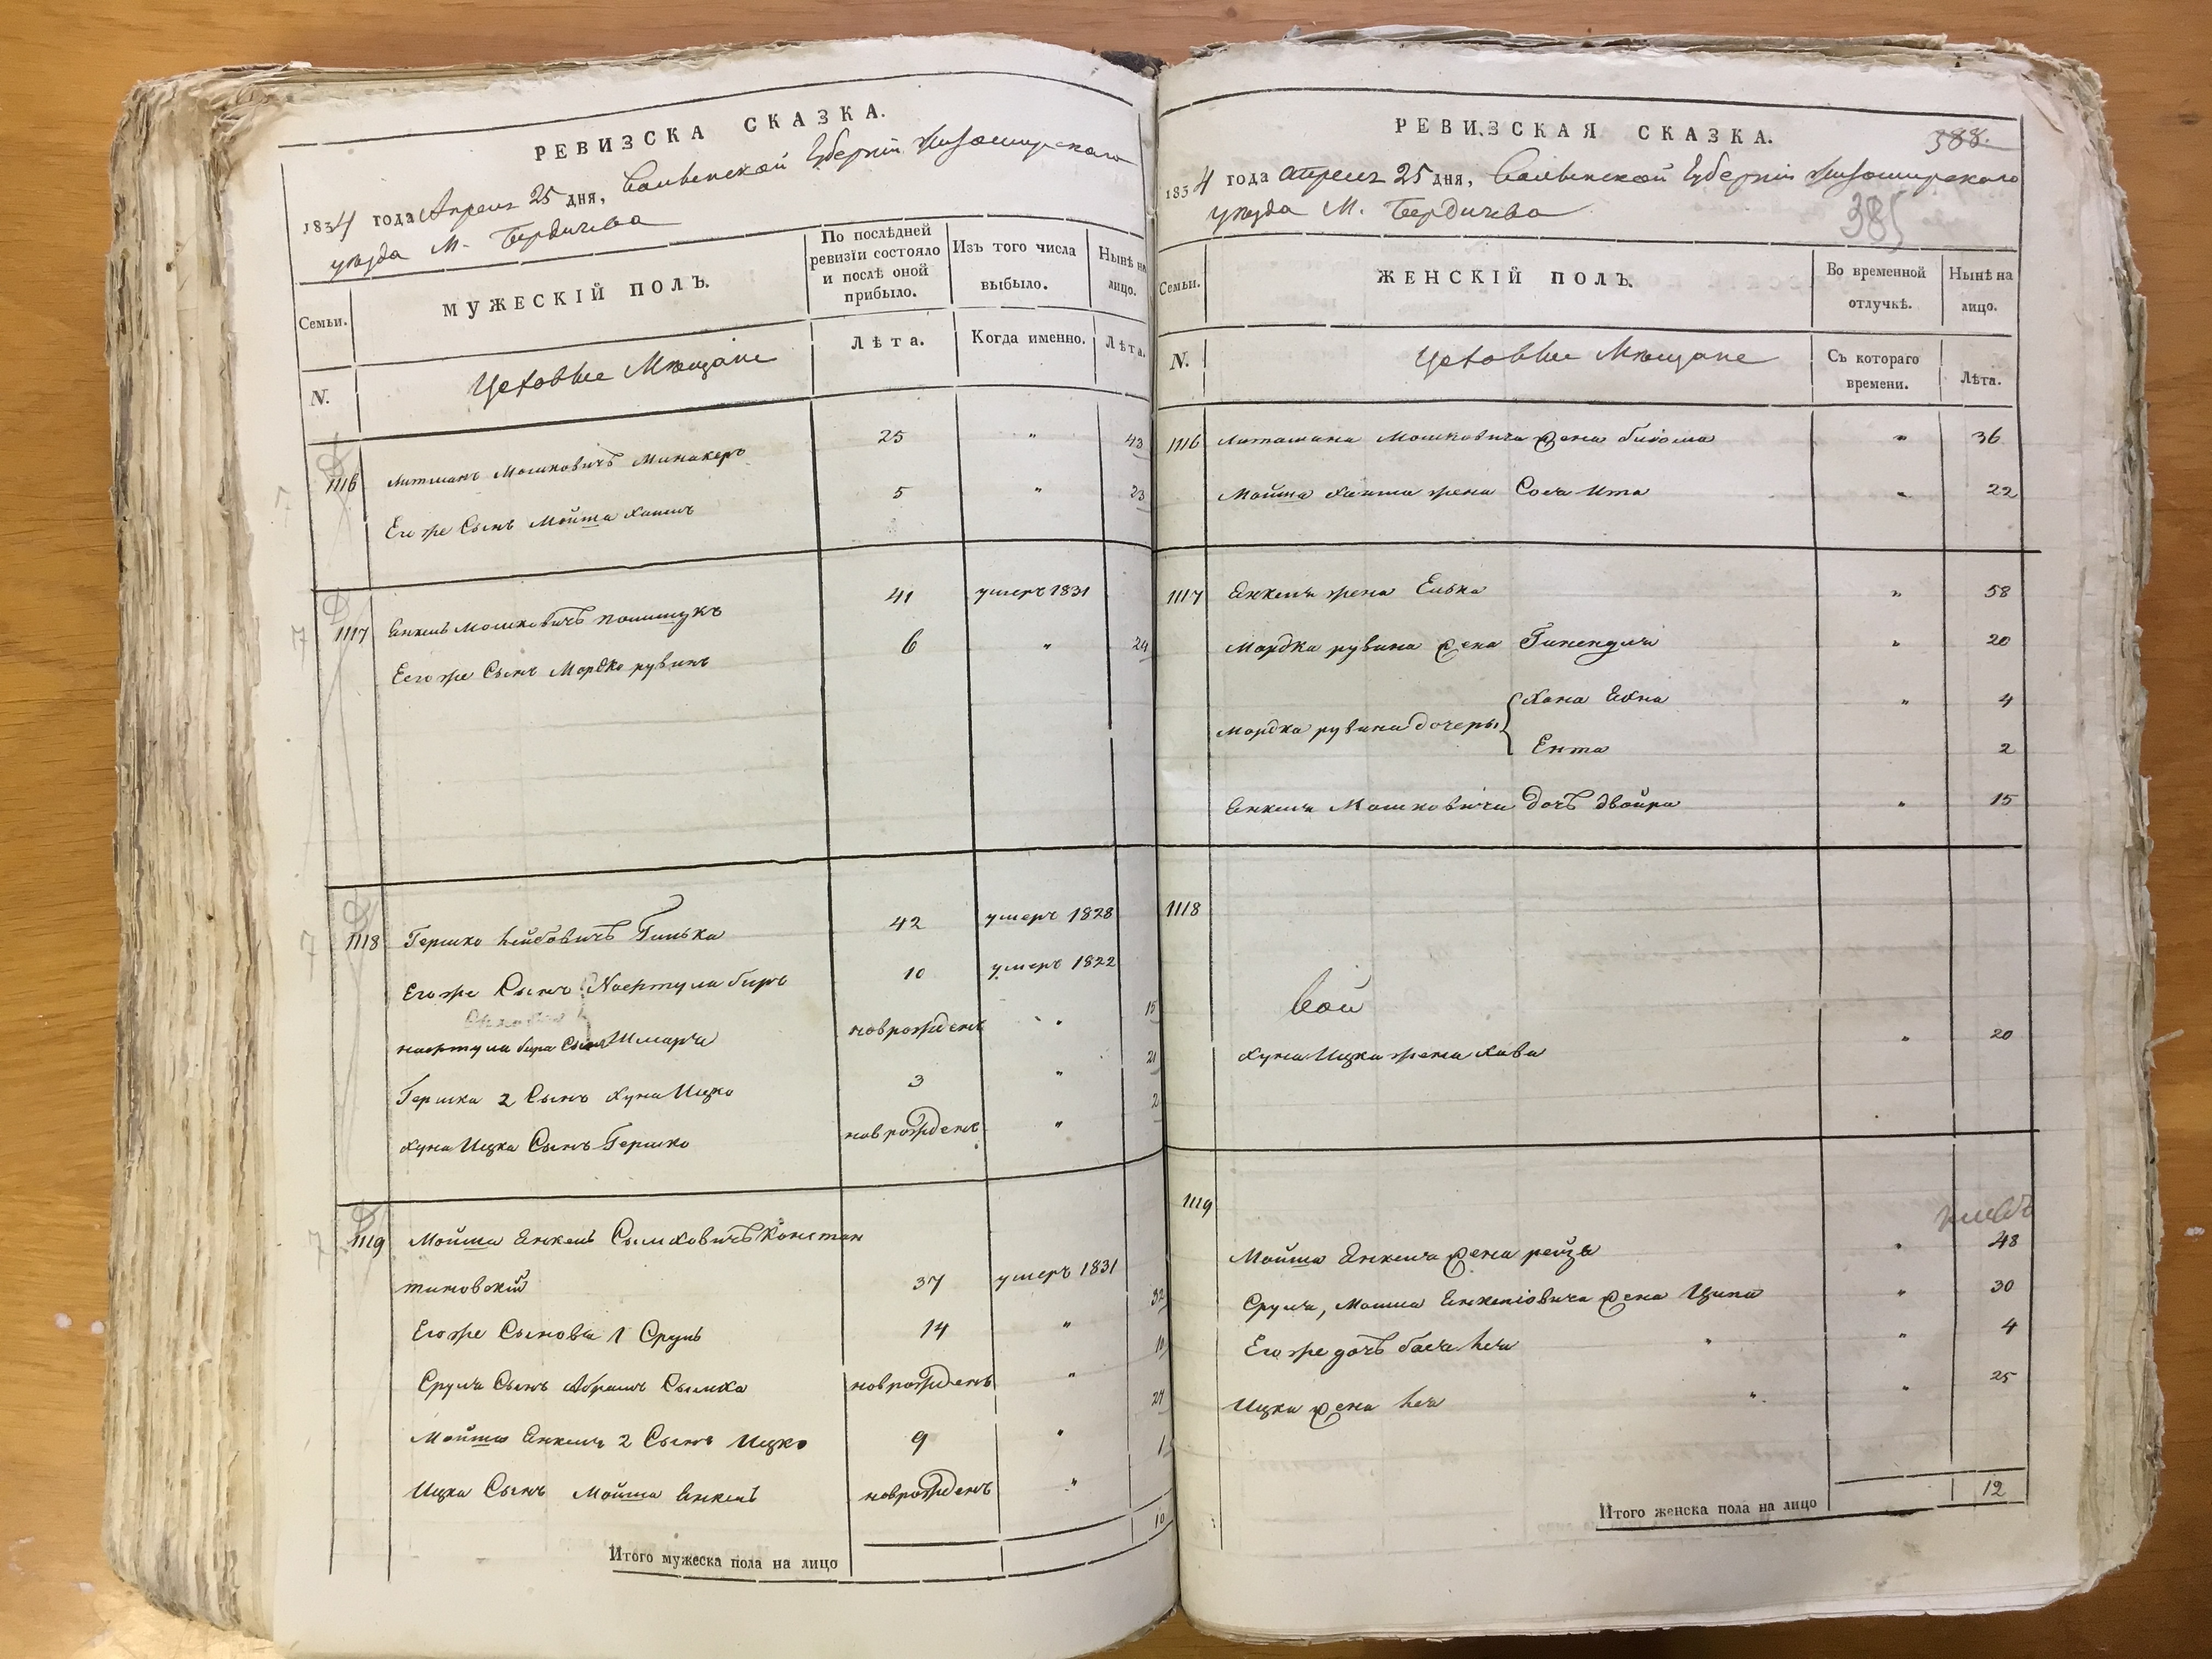 РЕВИЗСКА СКАЗКА.
1834 года Апреля 25 дня, Волынской Губернии Житомирского
уезда М. Бердичева
Семьи.
МУЖЕСКІЙ ПОЛЪ.
По послѣдней ревизіи состояло и послѣ оной прибыло.
Изъ того числа выбыло.
Нынѣ на лицо.
N.
Цеховые Мещане
Лѣта.
Когда именно.
Лѣта.
1116 Литманъ Мошковичъ Минакеръ 25 " 43
Его же Сынъ Мойша Хаимъ 5 " 23
1117 Янкель Мошковичъ полищукъ 41 умеръ 1831
Его же Сынъ Мордко рувинъ 6 " 24
1118 Гершко Лейбовичъ Гинька 42 умеръ 1828
Его же Сынъ Нафтула биръ 10 умеръ 1822
нафтула бира Сынъ Шмаря новрожденъ " 15
Гершка 2 Сынъ Хуна Ицко 3 " 21
Хуна Ицка Сынъ Гершко новрожденъ " 2
1119 Мойша Янкель Сымховичъ Констан
тиновский 37 умеръ 1831
Его же Сыновя 1 Сруль 14 " 32
Сруля Сынъ Абрамъ Сымха новрожденъ " 10
Мойша Янкеля 2 Сынъ Ицко 9 " 27
Ицка Сынъ Мойша Янкель новрожденъ " 1
Итого мужеска пола на лицо 10
РЕВИЗСКАЯ СКАЗКА.
388.
1834 года апреля 25 дня, Волынской Губернии Житомирского
уезда М. Бердичева
385
Семьи.
ЖЕНСКІЙ ПОЛЪ.
Во временной отлучкѣ.
Нынѣ на лицо.
N.
Цеховые Мещане
Съ котораго времени.
Лѣта.
1116 Литмана Мошковича жена " 36
Мойша Хаима жена Сося Ита " 22
1117 Янкеля жена Елька " 58
Мордка рувина жена Гинендля " 20
Мордка рувина дочеры Хана Ехна " 4
Ента 2
Янкеля Мошковича дочь двойра " 15
1118
Хуна Ицка жена Хава " 20
1119
Мойша Янкеля жена рейза " 48
Сруля, Мошка Янкеліовича жена Ципа " 30
Его же дочь бася Лея " " 4
Ицка жена Лея " " 25
Итого женска пола на лицо 12